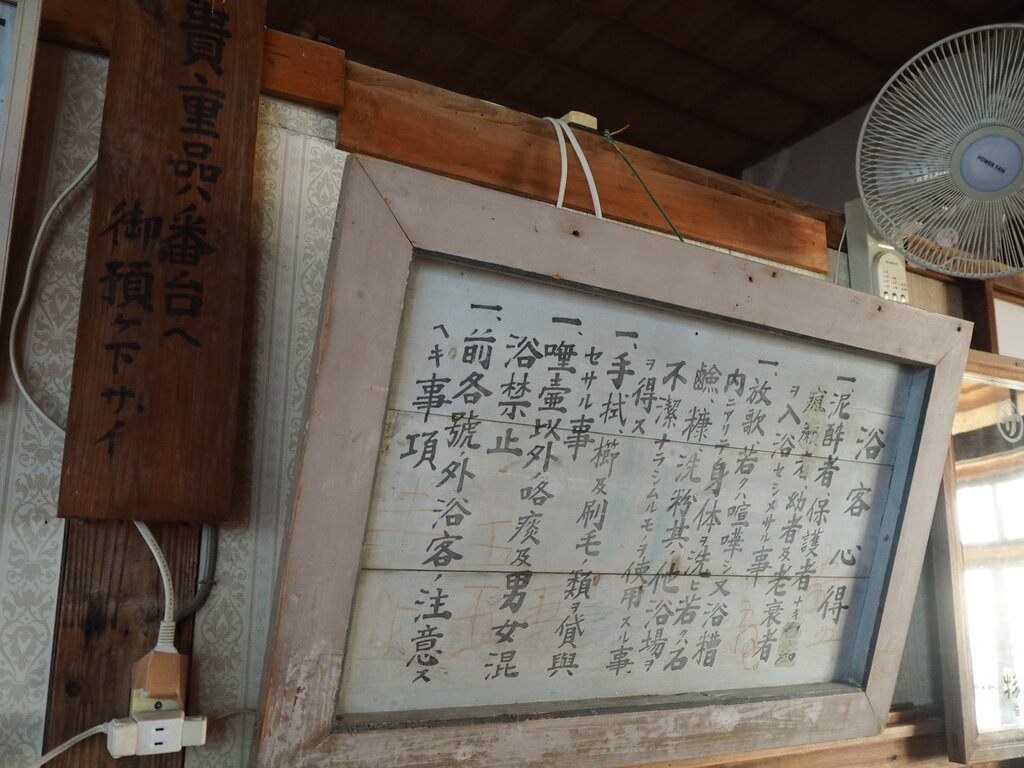 貴重品ハ番台へ
御預ケ下サイ
浴客心得
一泥酔者、保護者ナキ
幼者及老衰者
ヲ入浴セシメサル事
一、放歌、若クハ喧嘩シ又浴槽
内ニアリテ身体ヲ洗ヒ若ク石
鹸、糠、洗粉其ハ他浴場ヲ
不潔ナラシムルモノヲ使用スル事
ヲ得ス
一、手拭、櫛及刷毛ノ類ヲ貸與
セサル事
一、唾壷以外ノ咯痰及男女混
浴禁止
一、前各號ノ外浴客ノ注意ス
ヘキ事項
POWER FAN